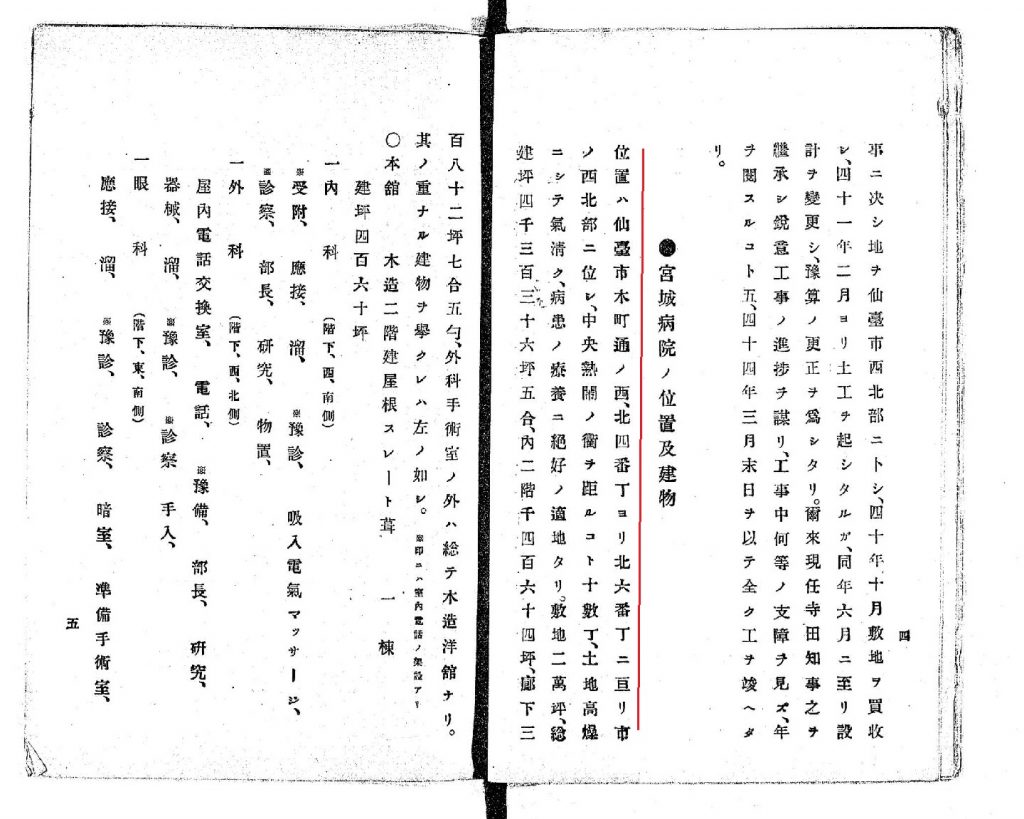 事ニ決シ地ヲ仙臺市西北部ニトシ、四十年十月敷地ヲ買收
シ、四十一年二月ヨリ土工ヲ起シタルガ、同年六月ニ至リ設
計ヲ變更シ、豫算ノ更正ヲ爲シタリ。爾來現任寺田知事之ヲ
繼承シ鋭意工事ノ進捗ヲ謀リ、工事中何等ノ支障ヲ見ズ、年
ヲ閲スルコト五、四十四年三月末日ヲ以テ全ク工ヲ竣ヘタ
リ。
●宮城病院ノ位置及建物
位置ハ仙臺市木町通ノ西、北四番丁ヨリ北六番丁ニ亘リ市
ノ西北部ニ位シ、中央熱鬧ノ衢ヲ距ルコト十數丁、土地高燥
ニシテ氣清ク、病患ノ療養ニ絶好ノ適地タリ。敷地二萬坪、總
建坪四千三百三十六坪五合、内二階千四百六十四坪、廊下三
四
百八十二坪七合五勺、外科手術室ノ外ハ總テ木造洋舘ナリ。
其ノ重ナル建物ヲ擧クレハ左ノ如シ。※印ニハ室内電話ノ架設アリ
〇本舘 木造二階建屋根スレート葺 一棟
建坪四百六十坪
一内科 (階下、西、南側)
※受附、應接、溜、※豫診、吸入電氣マッサージ、
※診察、部長、研究、物置、
一外科 (階下、西、北側)
屋内電話交換室、電話、※豫備、部長、研究、
器械、溜、※豫診、※診察 手入、
一眼科 (階下、東、南側)
應接、溜、※豫診、診察、暗室、準備手術室、
五